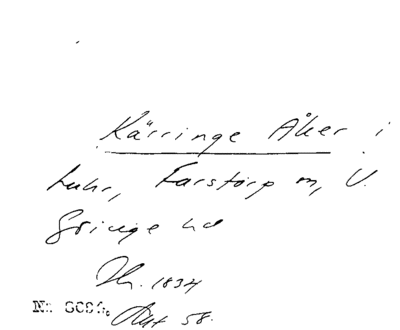 Kärringe Åker i
Luhr, Farstorp m, V.
Göinge hd
1834
No
58.